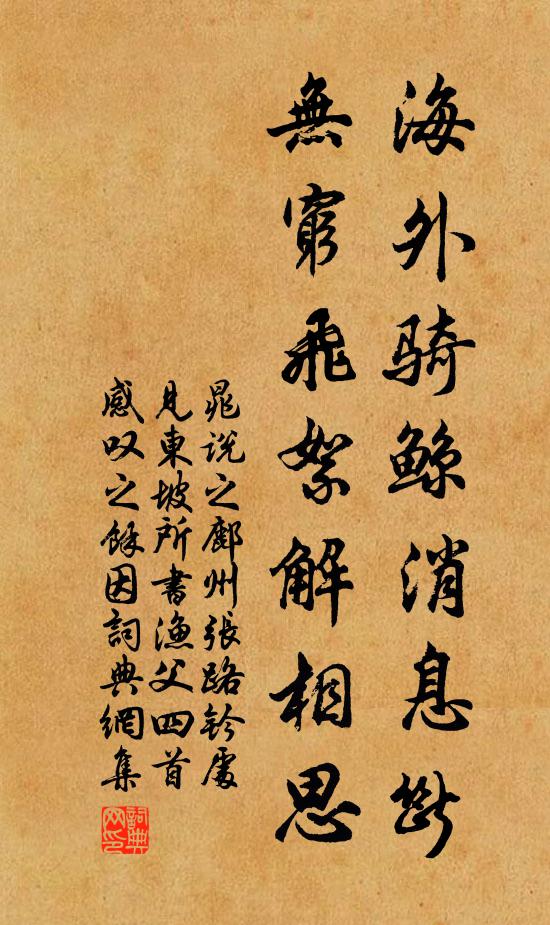 海外騎鲸消息斷
無窮飛絮解相思
晁说之鄜州張路鈐處
見東坡所書漁父四首
感叹之餘因詞典網集
詞典网印